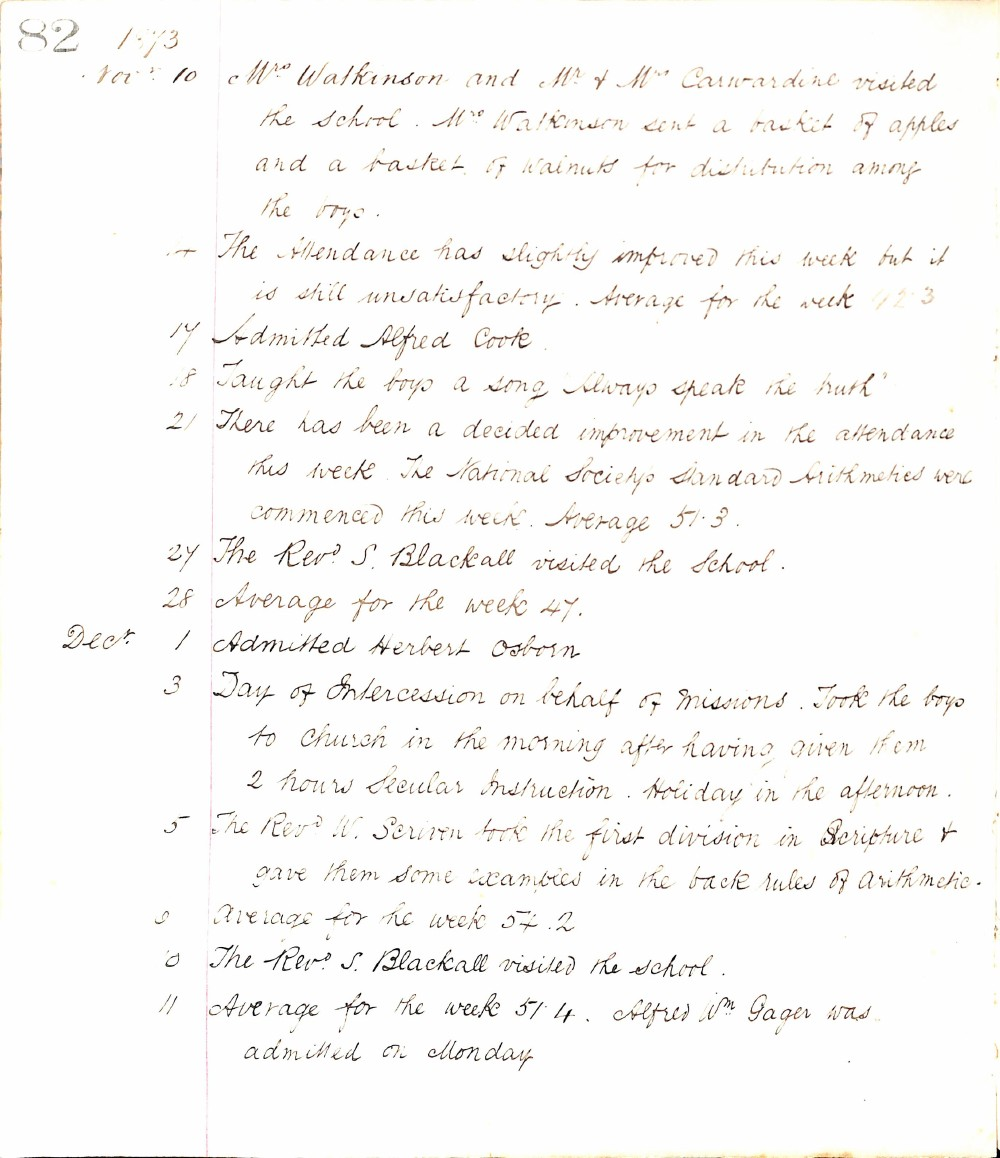 82 1873
Novr 10 Mrs Watkinson and Mr & Mrs Carwardine visited
the School. Mrs Watkinson sent a basket of apples
and a basket of Walnuts for distribution among
the boys.
The Attendance has slightly improved this week but it
is still unsatisfactory. Average for the week 42.3
17 Admitted Alfred Cook
18 Taught the boys a song "Always speak the truth"
21 There has been a decided improvement in the attendance
this week. The National Society's Standard Arithmetics were
commenced this week. Average 51.3.
27 The Revd S. Blackall visited the School.
28 Average for the week 47.
Decr 1 Admitted Herbert Osborn
3 Day of Intercession on behalf of Missions. Took the boys
to Church in the morning after having given them
2 hours Secular Instruction. Holiday in the afternoon.
5 The Revd W. Scriven took the first division in Scripture &
gave them some examples in the back rules of Arithmetic.
Average for he week 54.2
The Revd S. Blackall visited the school.
11 Average for the week 51.4. Alfred Wm Gager was
admitted on Monday